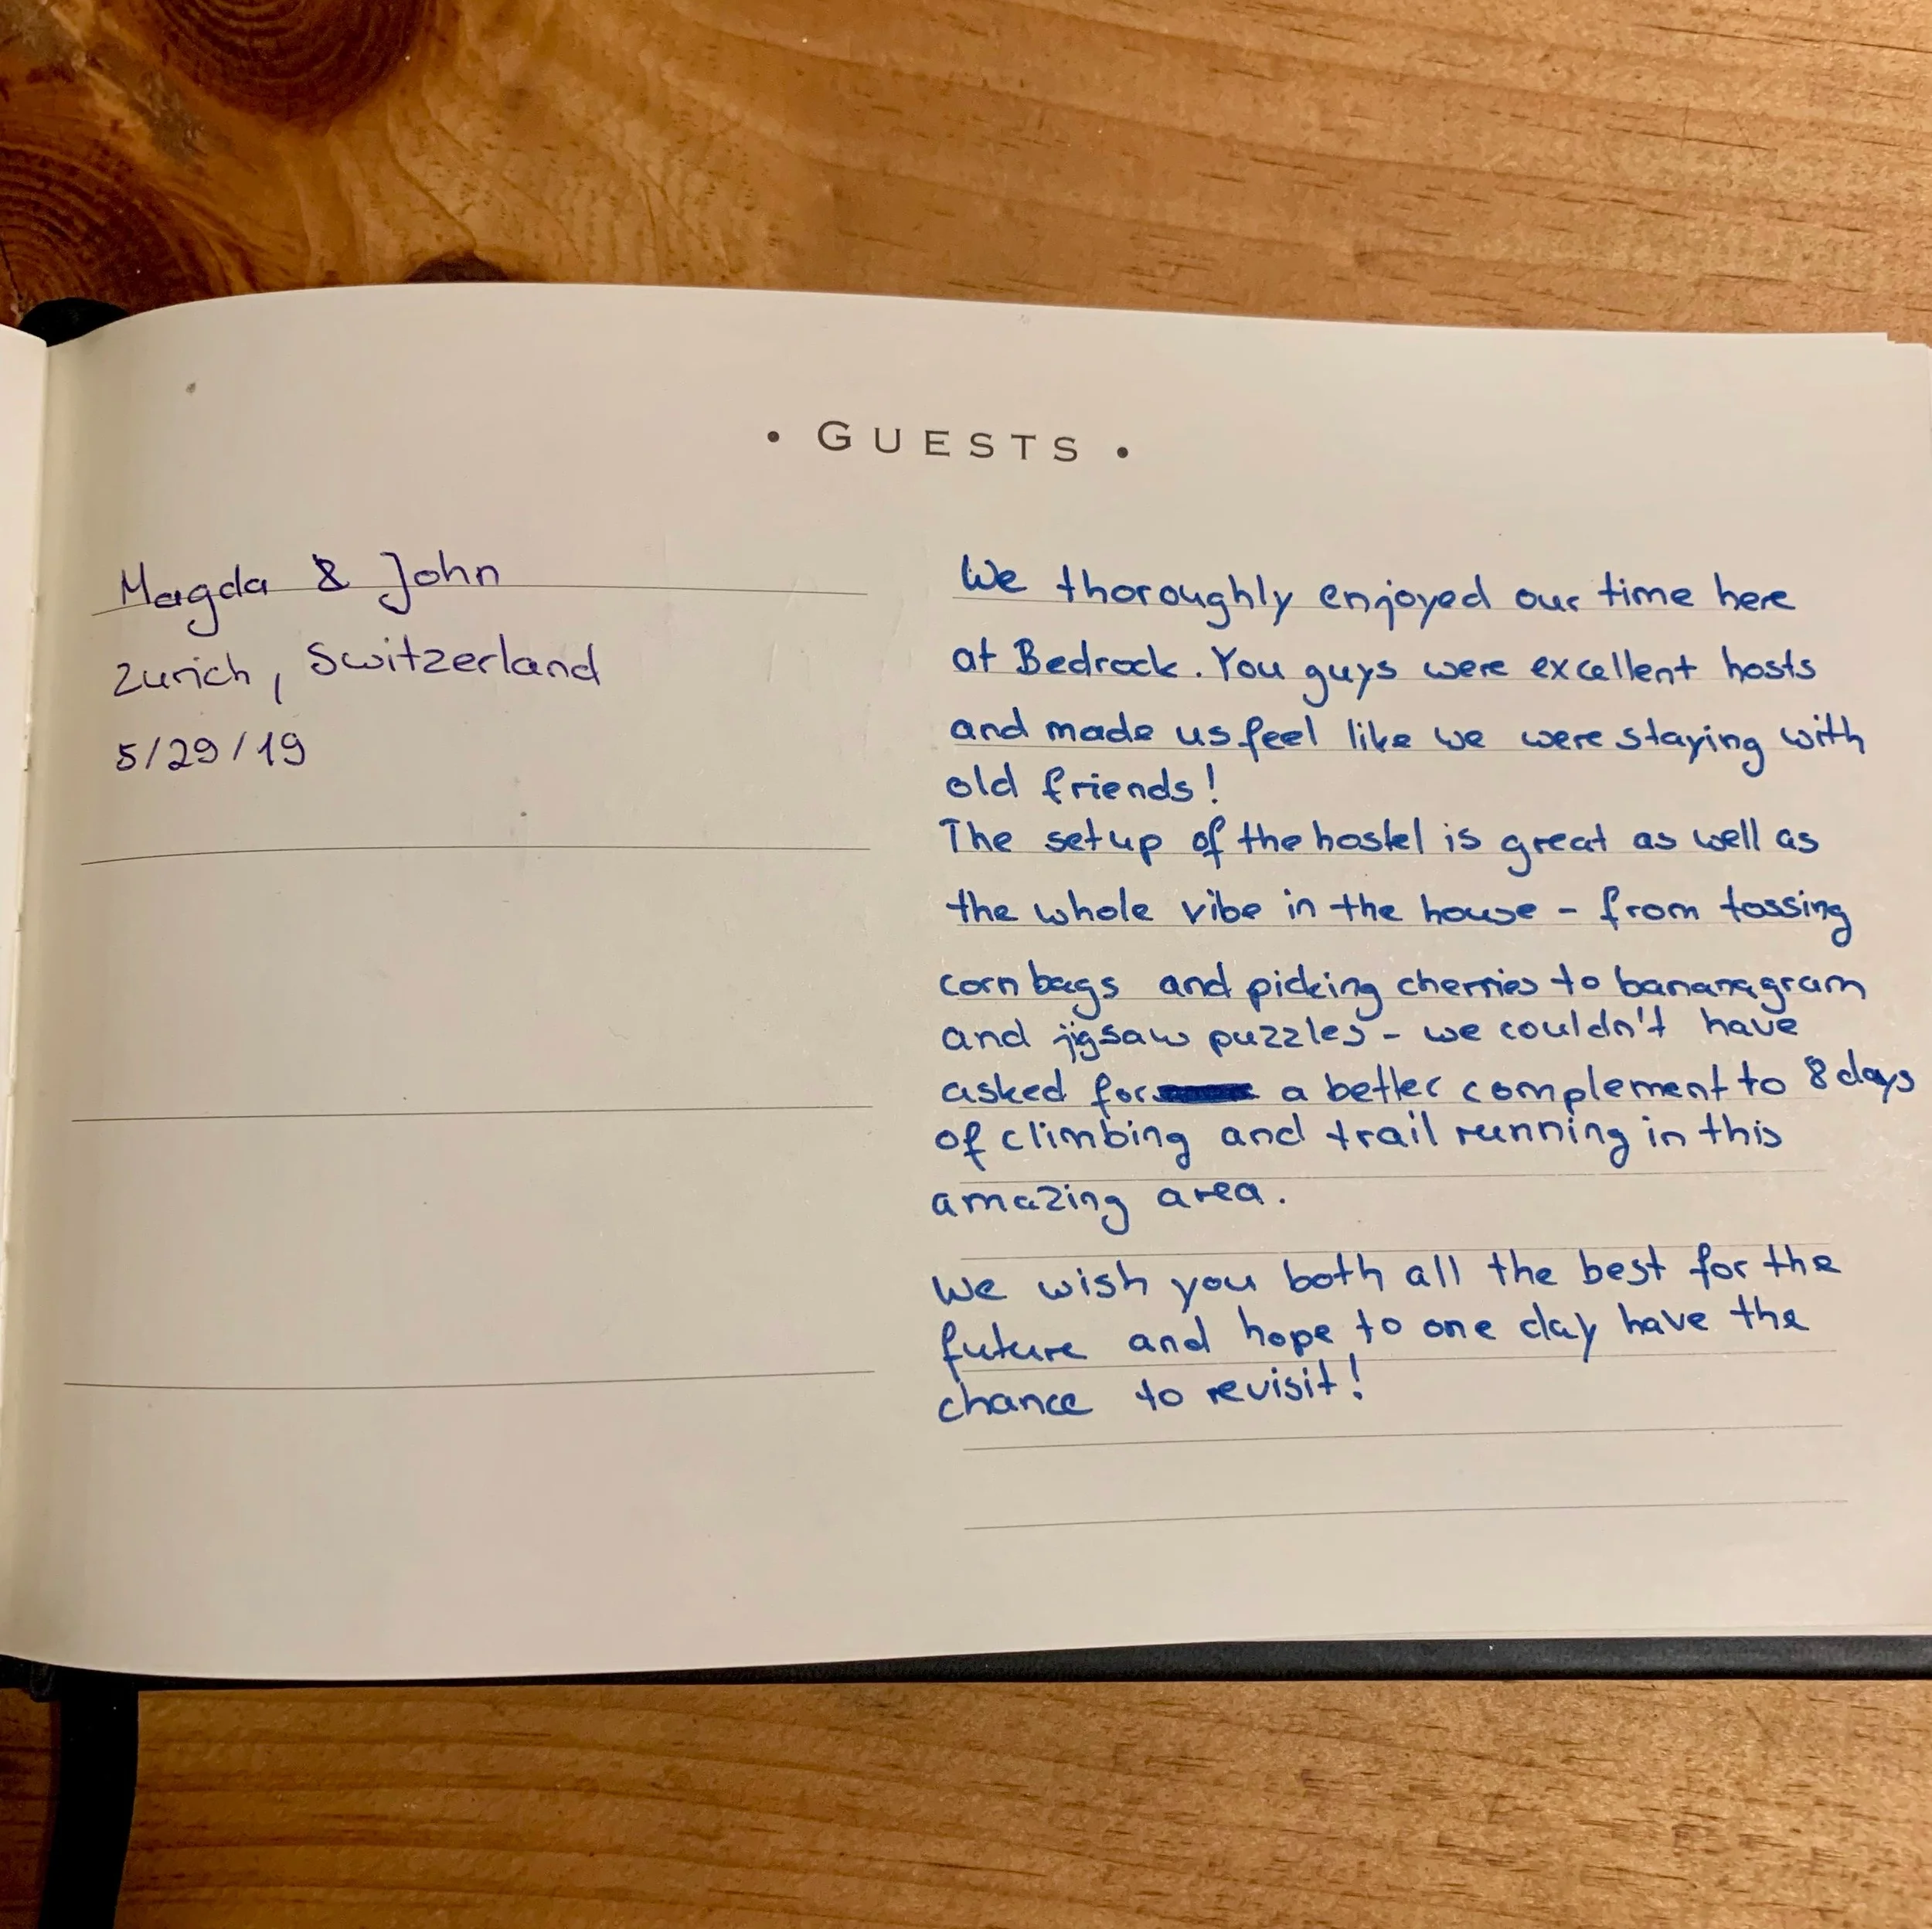 • GUESTS •
Magda & John
Zurich, Switzerland
5/29/19
We thoroughly enjoyed our time here
at Bedrock. You guys were excellent hosts
and made us feel like we were staying with
old friends!
The setup of the hostel is great as well as
the whole vibe in the house - from tossing
corn bags and picking cherries to bananagram
and jigsaw puzzles - we couldn't have
asked for a better complement to 8 days
of climbing and trail running in this
amazing area.
We wish you both all the best for the
future and hope to one day have the
chance to revisit!